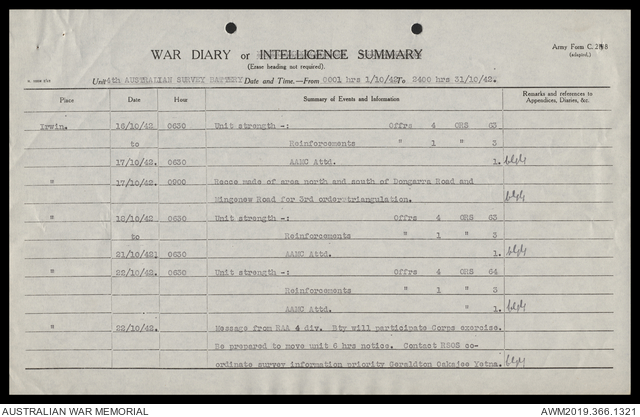 WAR DIARY or INTELLIGENCE SUMMARY
Army Form C. 2118
(adapted.)
(Erase heading not required).
Unit 4th AUSTRALIAN SURVEY BATTERY Date and Time.—From 0001 hrs 1/10/42 To 2400 hrs 31/10/42.
Place Date Hour Summary of Events and Information Remarks and references to Appendices, Diaries, &c.
Irwin. 16/10/42 0630 Unit strength -: Offrs 4 ORS 63
to Reinforcements " 1 " 3
17/10/42. 0630 AAMC Attd. 1.
" 17/10/42. 0900 Recce made of area north and south of Dongarra Road and
Mingenew Road for 3rd order triangulation.
" 18/10/42 0630 Unit strength -: Offrs 4 ORS 63
to Reinforcements " 1 " 3
21/10/42 0630 AAMC Attd. 1.
" 22/10/42. 0630 Unit strength -: Offrs 4 ORS 64
Reinforcements " 1 " 3
AAMC Attd. " 1.
" 22/10/42. Message from RAA 4 div. Bty will participate Corps exercise.
Be prepared to move unit 6 hrs notice. Contact HSOS co-
ordinate survey information priority Geraldton Oakajee Yetna.
AUSTRALIAN WAR MEMORIAL AWM2019.366.1321